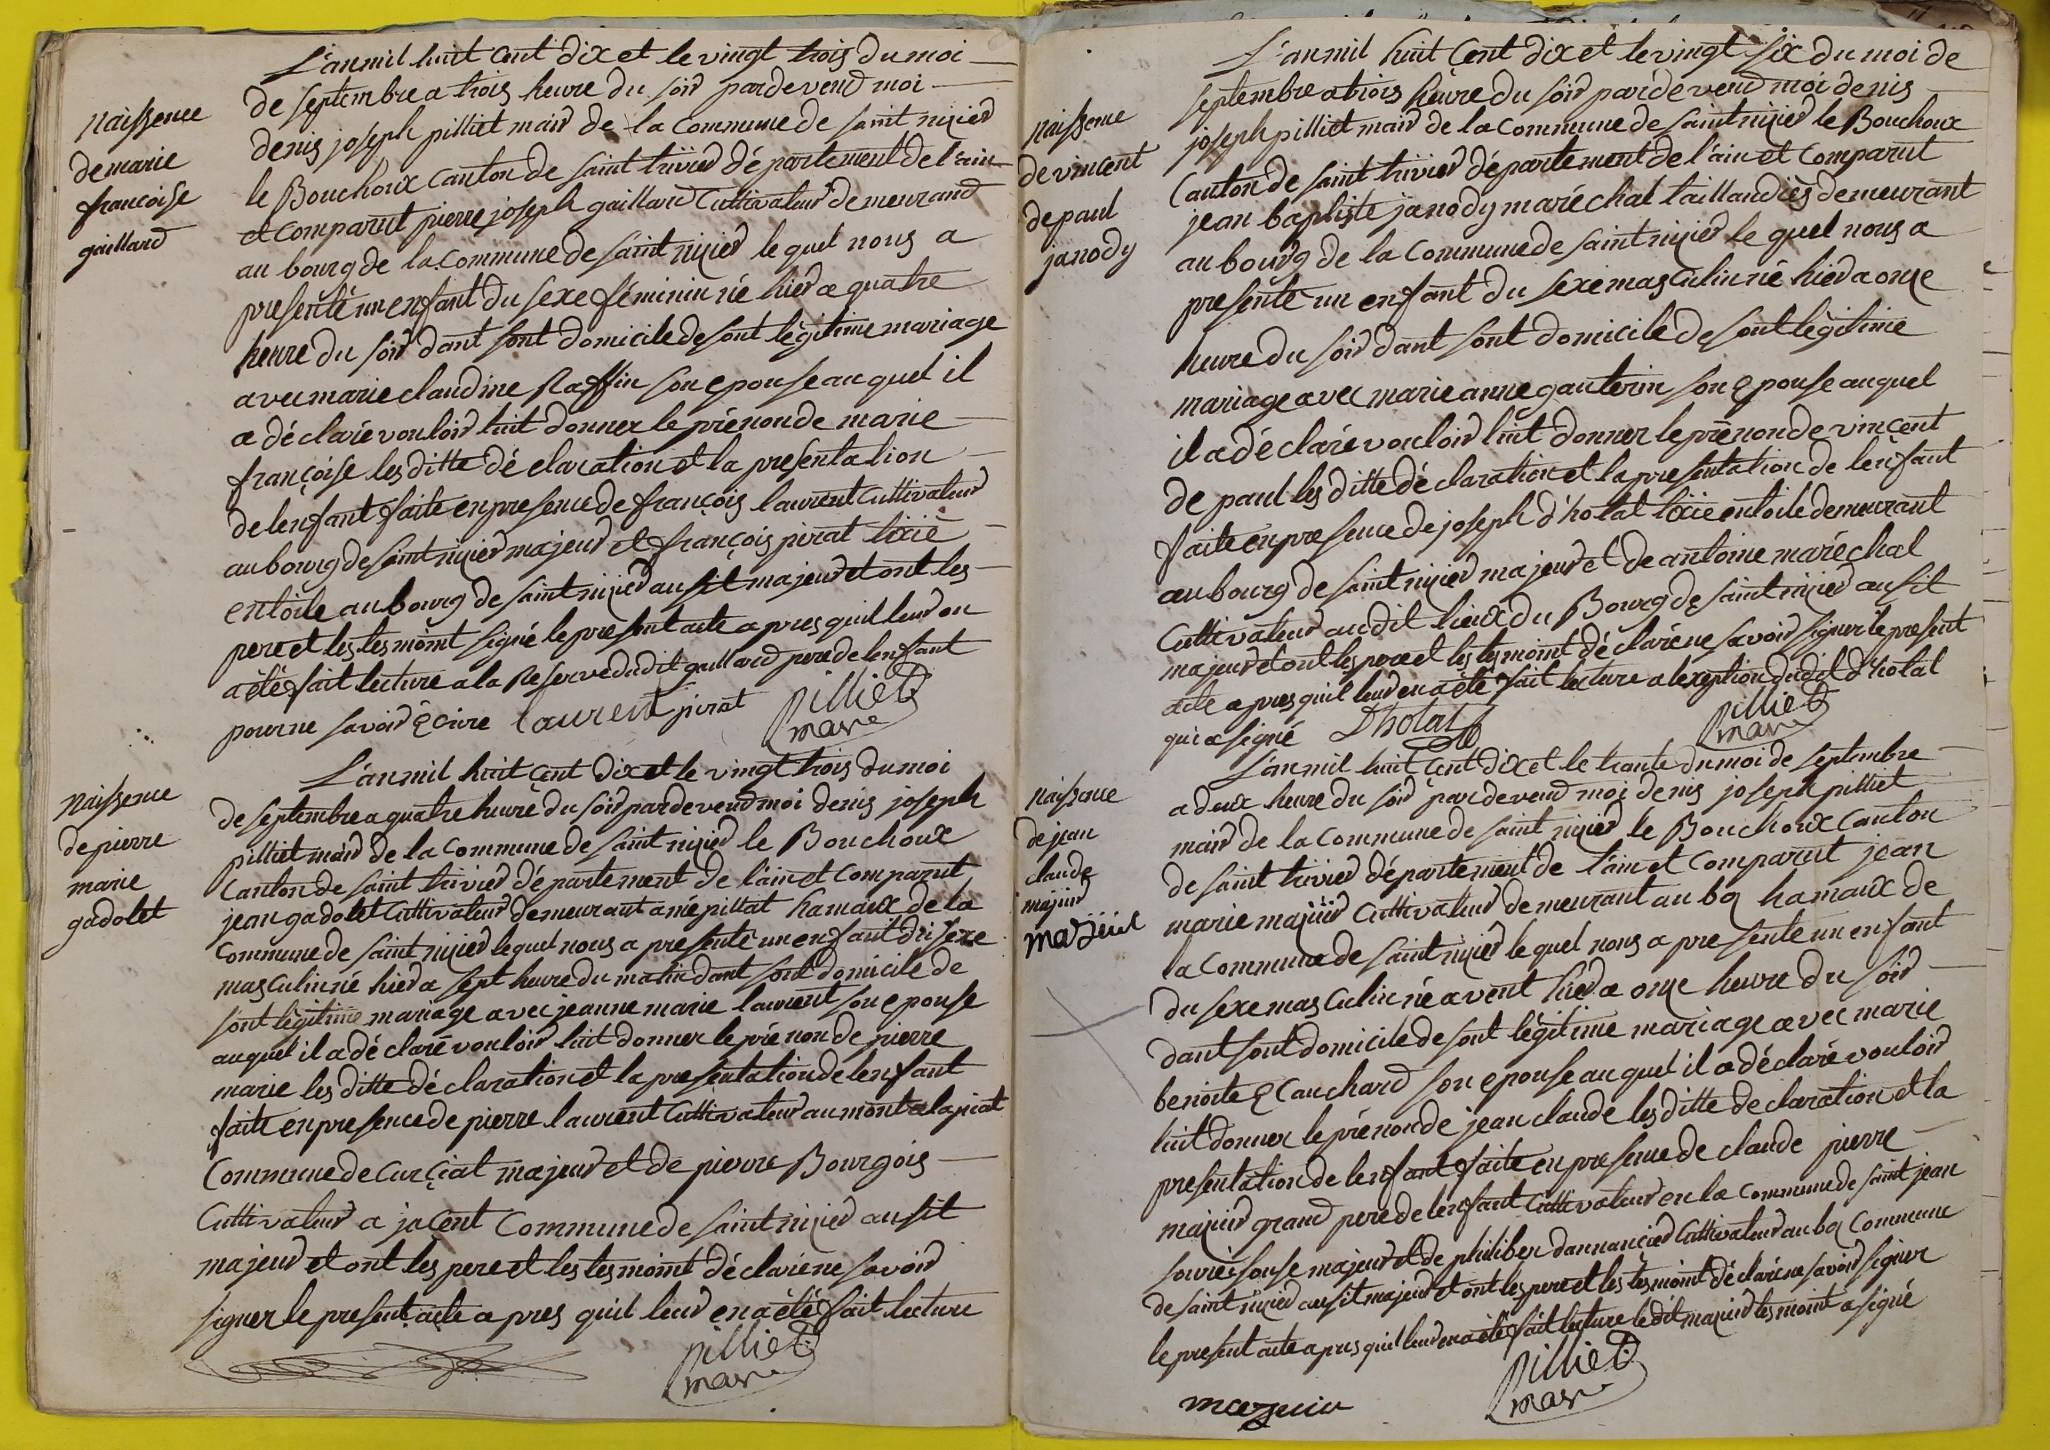 naissence
de marie
francoise
gaillard
L'an mil huit cent dix et le vingt trois du moi
de septembre a trois heure du soir pardevend moi
denis joseph pilliet mair de la commune de saint nizier
le Bouchoux canton de saint trivier département de l'ain
et comparut pierre joseph gaillard Cultivateur demeurand
au bourg de la commune de saint nizier le quel nous a
presenté un enfant du sexe féminin né hier a quatre
heure du soir dant sont domicile de sont légitime mariage
avec marie claudine Raffin son epouse au quel il
a déclaré vouloir luit donner le prénon de marie
françoise les ditte déclaration et la presentation
de lenfant faite en presence de françois laurent cultivateur
au bourg de saint nizier majeur et françois pirat tixié
entoile au bourg de saint nizier ausit majeur et ont les
pere et les tesmoint signé le present acte apres quil leur on
a été fait lecture a la Reserve dudit gaillard pere de lenfant
pour ne savoir Ecrire laurent pirat pilliet
mair
naissence
de pierre
marie
gadolet
L'an mil huit cent dix et le vingt trois du moi
de septembre a quatre heure du soir pardevend moi denis joseph
pilliet mair de la commune de saint nizier le Bouchoux
canton de saint trivier département de l'ain et comparut
jean gadolet Cultivateur demeurant a mépillat hamaux de la
commune de saint nizier lequel nous a presenté un enfant du sexe
masculin né hier a sept heure du matin dant sont domicile de
sont légitime mariage avec jeanne marie laurent son epouse
auquel il a déclaré vouloir luit donner le prénon de pierre
marie les ditte déclaration et la presentation de lenfant
faite en presence de pierre laurent Cultivateur au mont
Commune de curçiat majeur et de pierre Bourgois
Cultivateur a jaçent Commune de saint nizier ausit
majeur et ont les pere et les tesmoint déclaré ne savoir
signer le present acte apres quil leur en a été fait lecture
pilliet
mair
naissence
de vincent
de paul
janody
L'an mil huit cent dix et le vingt six du moi de
septembre a trois heure du soir pardevend moi denis
joseph pilliet mair de la commune de saint nizier le Bouchoux
canton de saint trivier département de l'ain et comparut
jean baptiste janody maréchal taillandiés demeurant
au bourg de la commune de saint nizier le quel nous a
presenté un enfant du sexe masculin né hier a onze
heure du soir dant sont domicile de sont légitime
mariage avec marie anne gauterin son Epouse auquel
il a déclaré vouloir luit donner le prénon de vincent
de paul les ditte déclaration et la presentation de lenfant
faite en presence de joseph d'holat tixié entoile demeurant
au bourg de saint nizier majeur et de antoine maréchal
Cultivateur audit lieux du Bourg de saint nizier ausit
majeur et ont les pere et les tesmoint déclaré ne savoir signer le present
acte apres quil leur en a été fait lecture a lexeption dudit d'holat
qui a signé Dholat pilliet
mair
naissence
de jean
claude
mazuir
mazuir
L'an mil huit cent dix et le trante du moi de septembre
a deux heure du soir pardevend moi denis joseph pilliet
mair de la commune de saint nizier le Bouchoux Canton
de saint trivier département de l'ain et Comparut jean
marie mazuir Cultivateur demeurant au bq hamaux de
la commune de saint nizier le quel nous a presente un enfant
du sexe masculin né avent hier a onze heure du soir
dant sont domicile de sont légitime mariage avec marie
benoite Ecauchard son epouse auquel il a déclaré vouloir
luit donner le prénon de jean claude les ditte declaration et la
presentation de lenfant faite en presence de claude pierre
mazuir grand pere de lenfant Cultivateur en la commune de saint jean
majeur et de philiber dannancier Cultivateur au bq Commune
de saint nizier ausit majeur et ont les pere et les tesmoint déclaré ne savoir signer
le present acte apres quil leur en a été fait lecture le dit mazuir tesmoint a signé
mazuir pilliet
mair